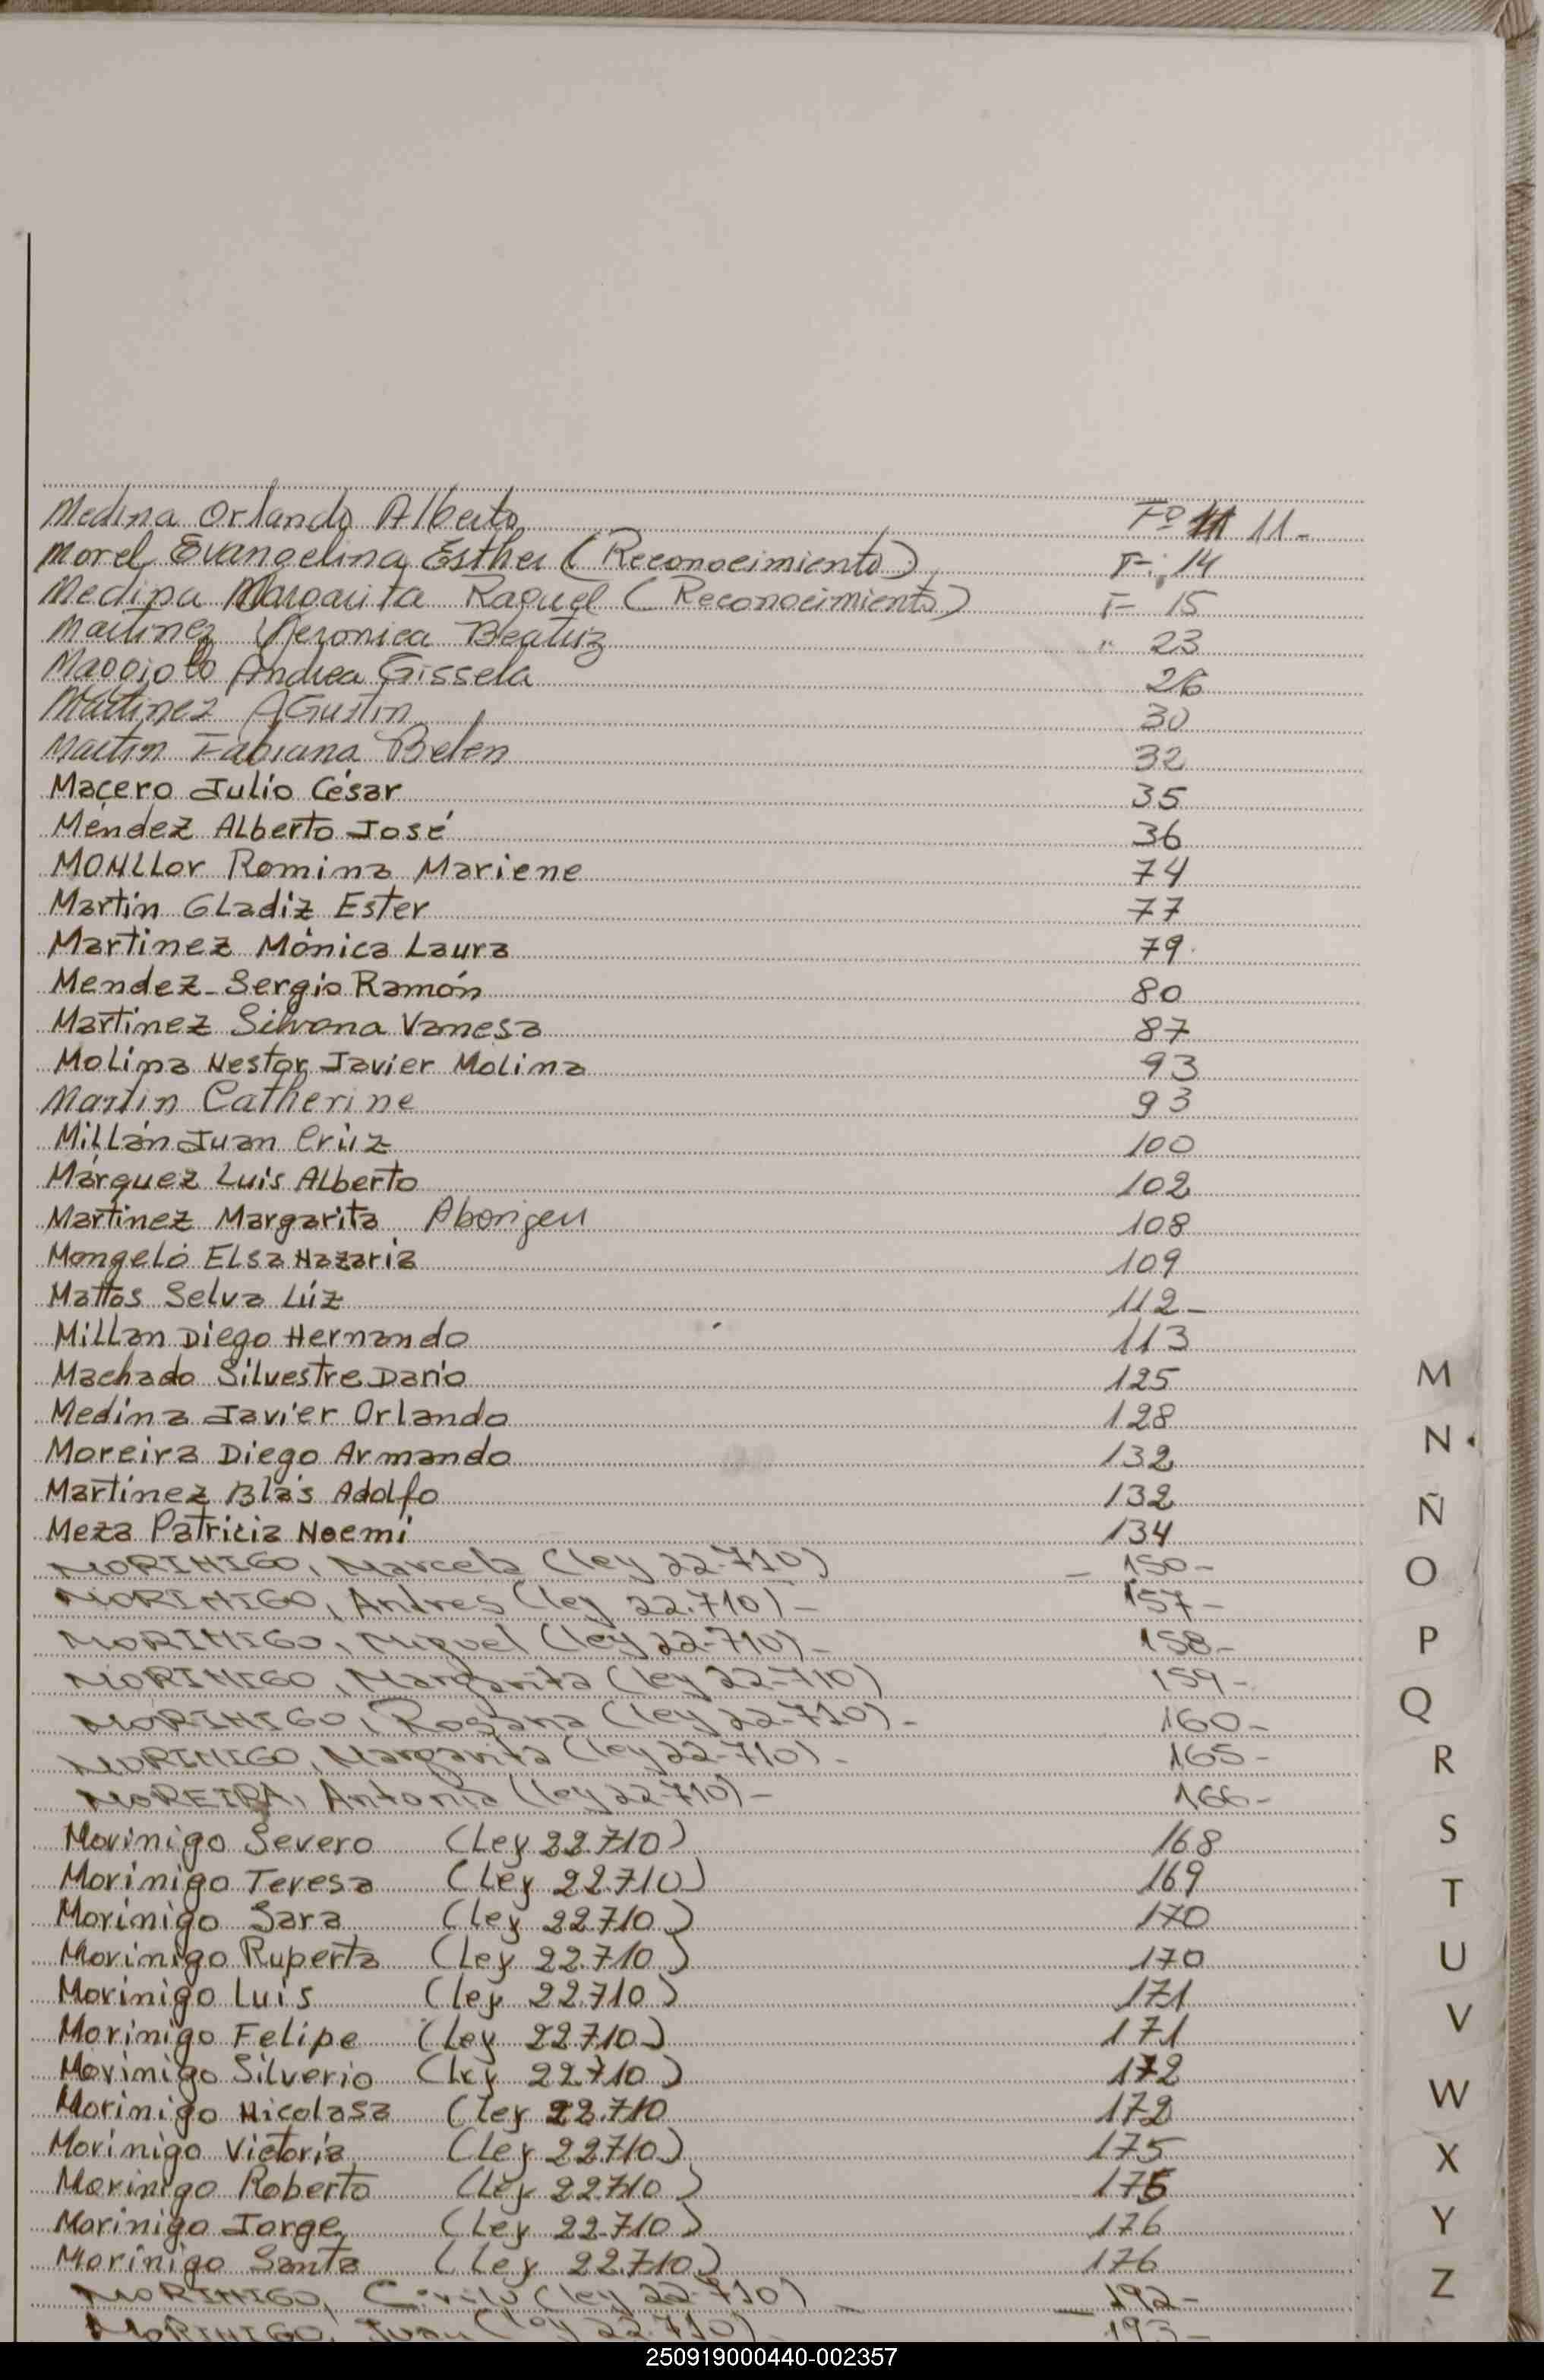 Medina Orlando Alberto Fº 11 11-
Morel Evangelina Esther (Reconocimiento) F- 14
Medina Margarita Raquel (Reconocimiento) F- 15
Martinez Veronica Beatriz " 23
Maggiolo Andrea Gissela 26
Martinez Agustin 30
Martin Fabiana Belen 32
Macero Julio César 35
Méndez Alberto José 36
MONLLor Romina Mariene 74
Martin GLadiz Ester 77
Martinez Mónica Laura 79.
Mendez Sergio Ramón 80
Martinez Silvana Vanesa 87
Molina Nestor Javier Molina 93
Martin Catherine 93
Millán Juan Crúz 100
Márquez Luis Alberto 102
Martinez Margarita Aborigen 108
Mongeló Elsa Nazaria 109
Mattos Selva Lúz 112-
Millan Diego Hernando 113
Machado Silvestre Darío 125
Medina Javier Orlando 128
Moreira Diego Armando 132
Martinez Blás Adolfo 132
Meza Patricia Noemí 134
MORINIGO, Marcela (ley 22-710) - 150-
MORINIGO, Andres (ley 22.710)- 157-
MORINIGO, Miguel (ley 22-710)- 158-
MORINIGO, Margarita (ley 22-710) 159-
MORINIGO, Rosana (ley 22-710)- 160-
MORINIGO, Margarita (ley 22-710)- 165-
MOREIRA, Antonia (ley 22-710)- 166-
Morinigo Severo (Ley 22.710) 168
Morinigo Teresa (Ley 22.710) 169
Morinigo Sara (Ley 22.710) 170
Morinigo Ruperta (Ley 22.710) 170
Morinigo Luis (ley 22.710) 171
Morinigo Felipe (Ley 22.710) 171
Morinigo Silverio (Ley 22.710) 172
Morinigo Nicolasa (Ley 22.710 172
Morinigo Victoria (Ley 22.710) 175
Morinigo Roberto (Ley 22.710) 175
Morinigo Jorge (Ley 22.710) 176
Morinigo Santa (Ley 22.710) 176
MORINIGO, Cirilo (ley 22-710) - 192-
MORINIGO, Juan (ley 22.710)- 193-
M
N
Ñ
O
P
Q
R
S
T
U
V
W
X
Y
Z
250919000440-002357